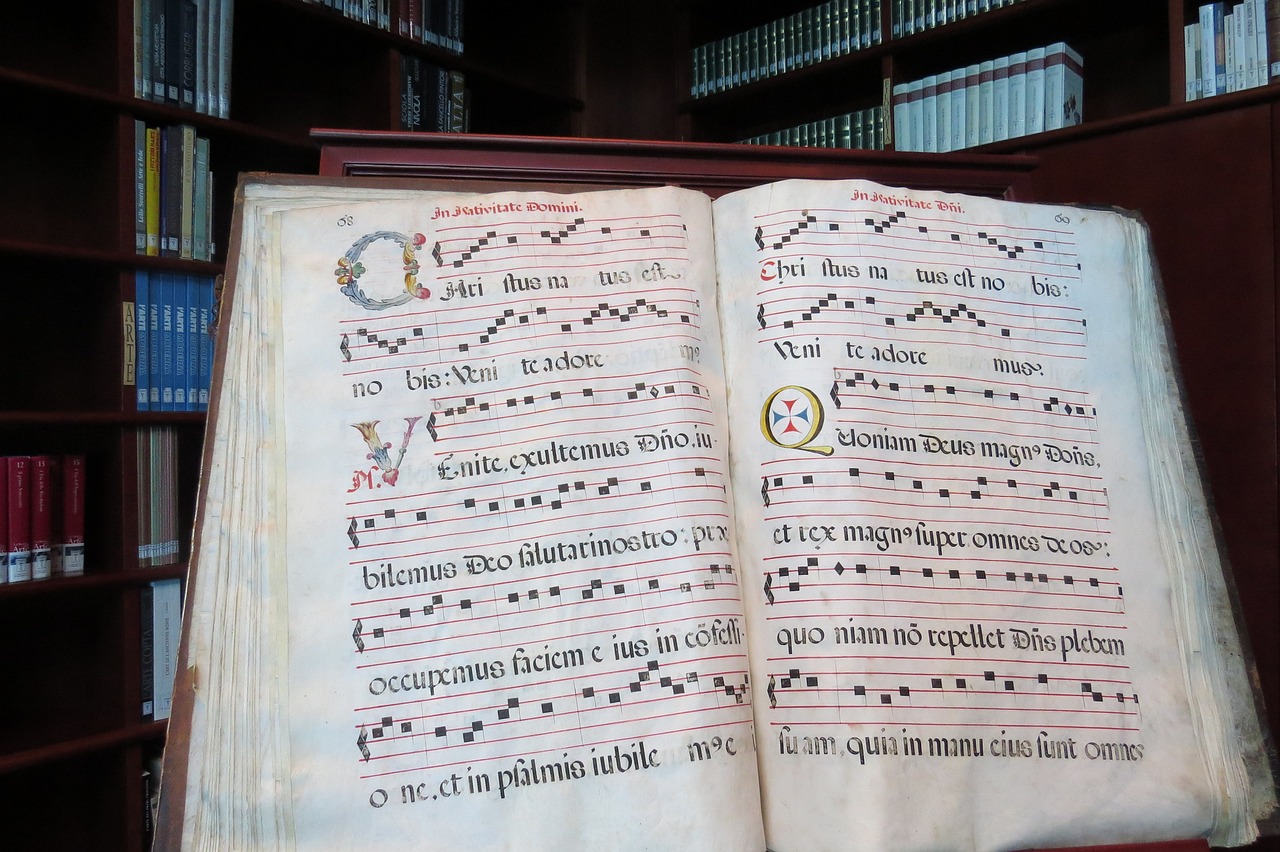 68
In Nativitate Domini.
CHri stus na tus est
no bis: Veni te adore m9
Ps. VEnite, exultemus Dño, iu-
bilemus Deo salutari nostro: præ
occupemus faciem e ius in cõfessi-
o ne, et in psalmis iubile m9 e
69
In Nativitate Dñi.
Chri stus na tus est no bis:
Veni te adore mus.
QUoniam Deus magn9 Doñs,
et rex magn9 super omnes deos:
quo niam nõ repellet Dñs plebem
su am, quia in manu eius sunt omnes
ARTE
L'ARTE
L'ARTE
L'ARTE
L'ARTE
L'ARTE